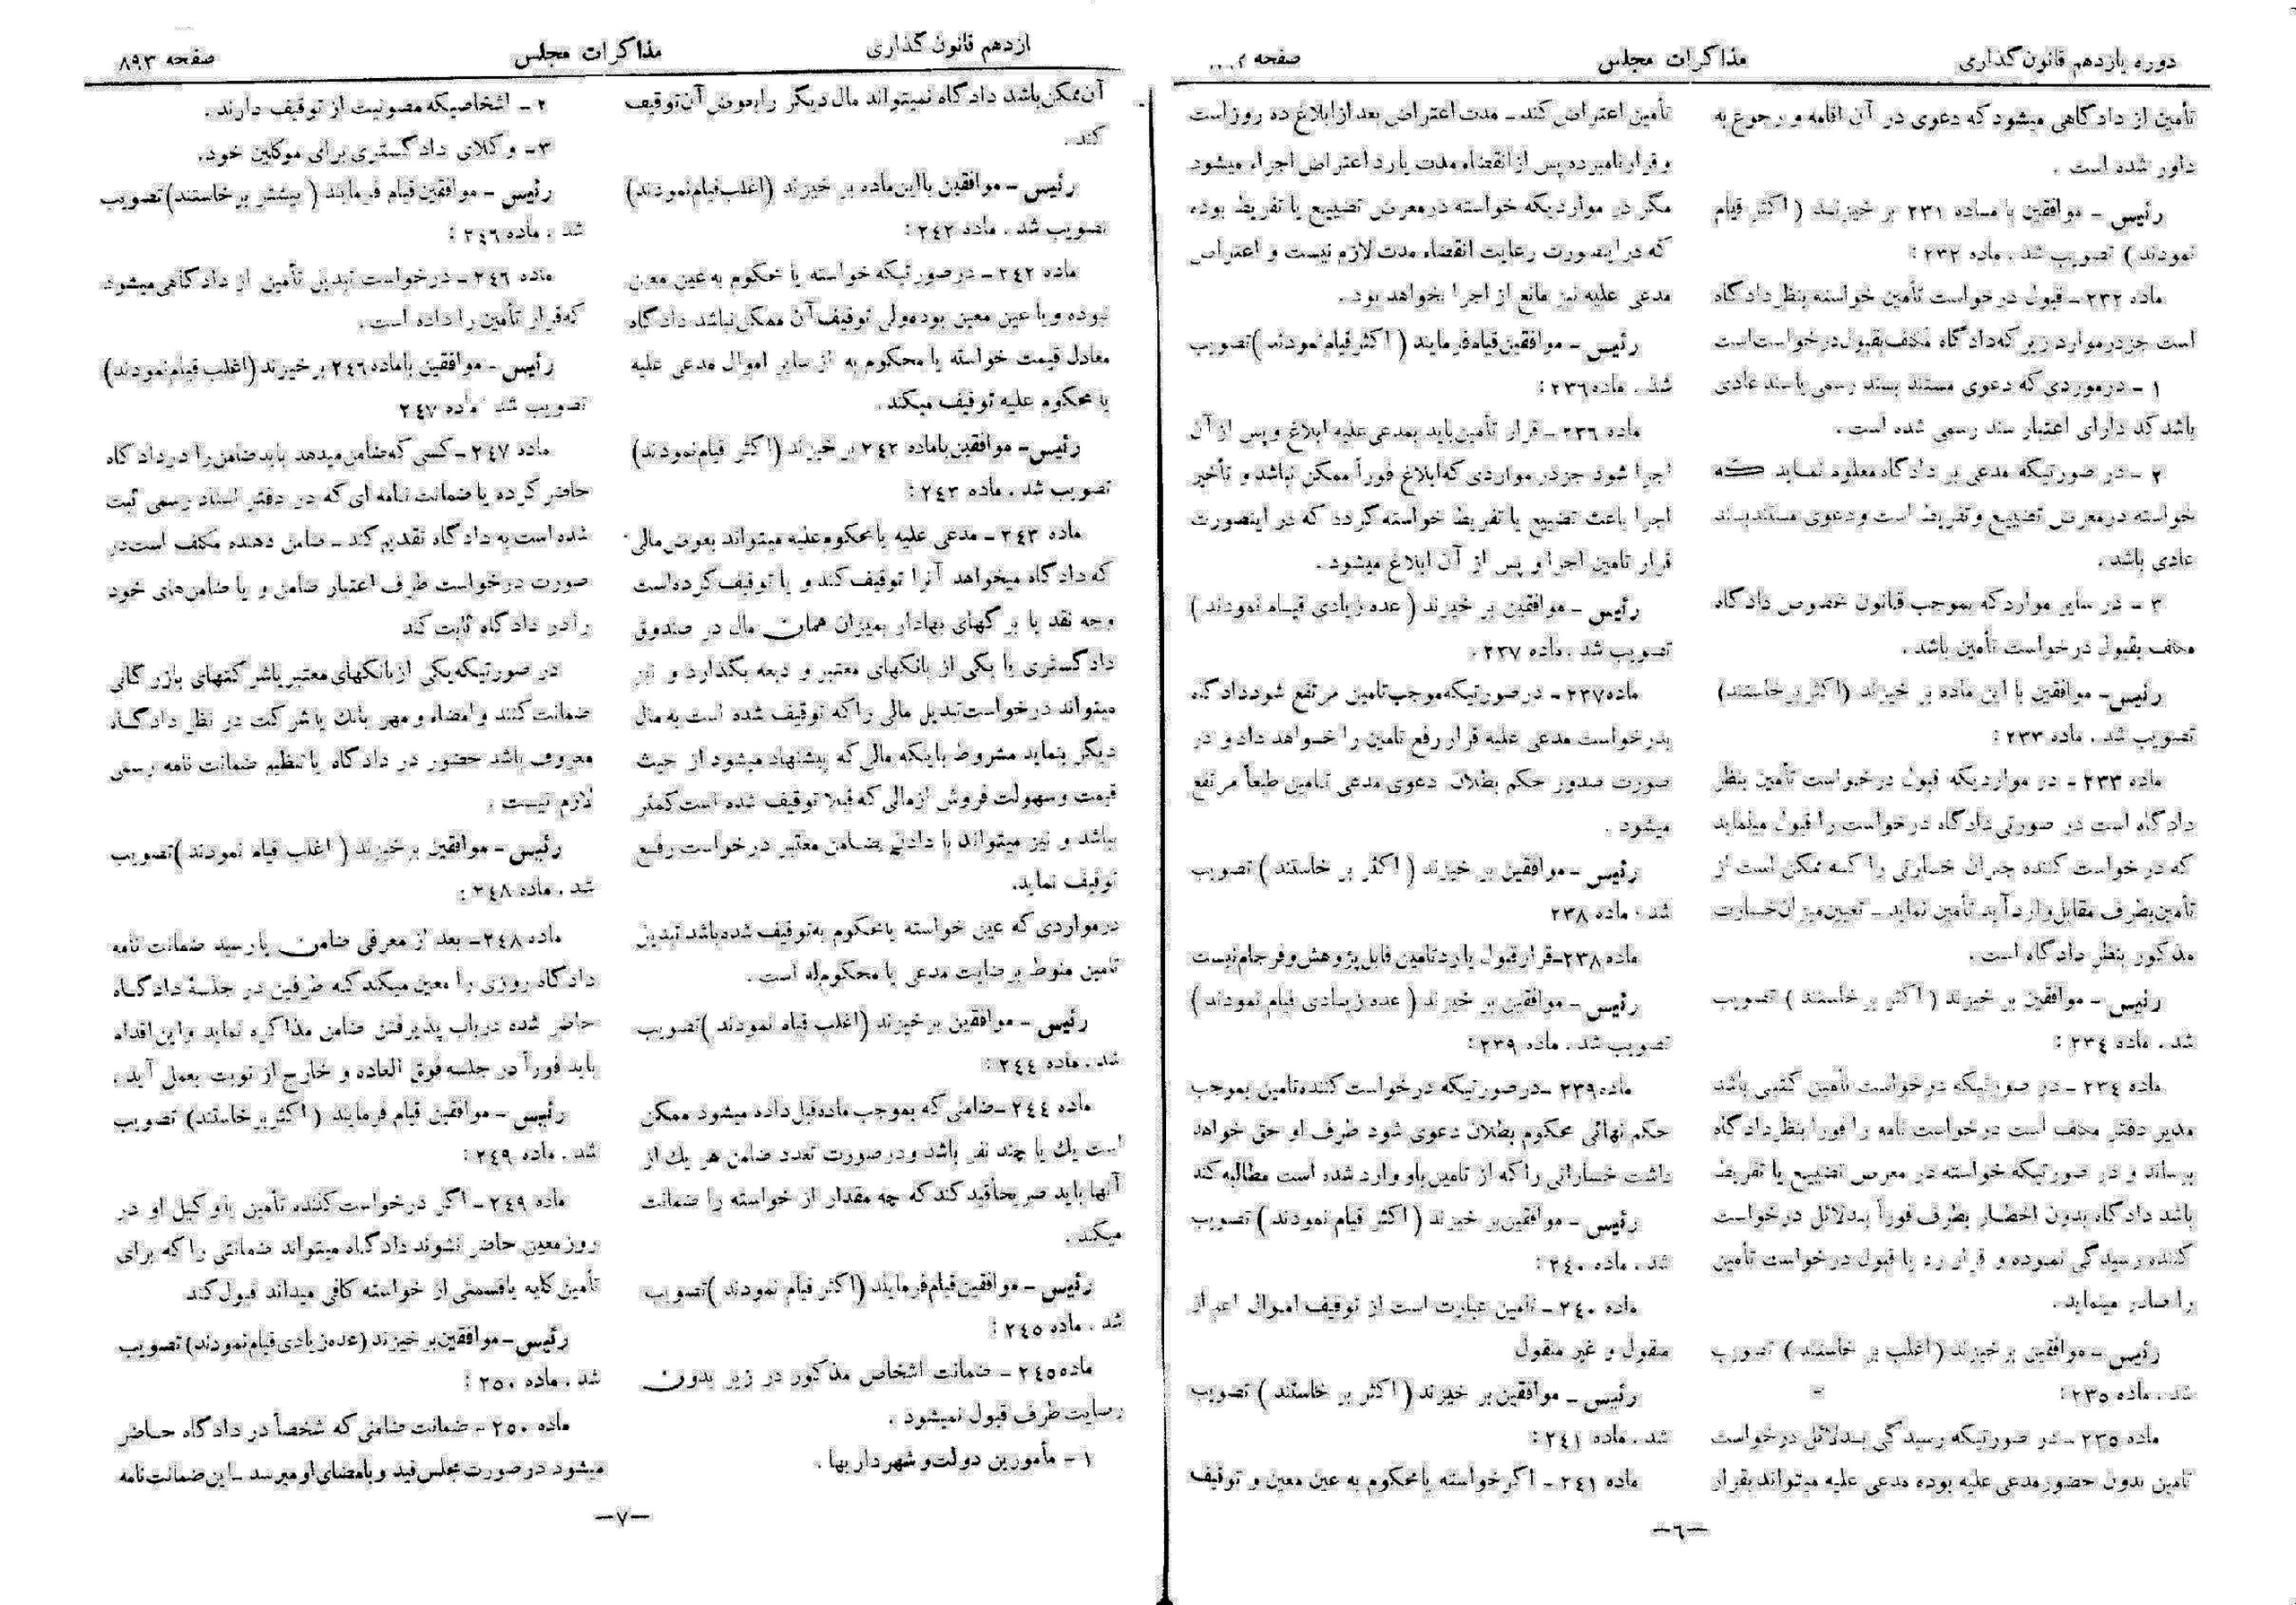 دوره یازدهم قانون گذاری
مذاکرات مجلس
صفحه
تأمین از دادگاهی میشود که دعوی در آن اقامه و رجوع به
داور شده است .
رئیس - موافقین با ماده ٢٣١ بر خیزند ( اکثر قیام
نمودند ) تصویب شد . ماده ٢٣٢ :
ماده ٢٣٢ - قبول درخواست تأمین خواسته بنظر دادگاه
است جز در موارد زیر که دادگاه مکلف بقبول درخواست است
١ - در موردی که دعوی مستند بسند رسمی یا سند عادی
باشد که دارای اعتبار سند رسمی شده است .
٢ - در صورتیکه مدعی بر دادگاه معلوم نماید که
خواسته در معرض تضییع و تفریط است و دعوی مستند بسند
عادی باشد .
٣ - در سایر موارد که بموجب قانون مخصوص دادگاه
مکلف بقبول درخواست تأمین باشد .
رئیس - موافقین با این ماده بر خیزند (اکثر برخاستند)
تصویب شد . ماده ٢٣٣ :
ماده ٢٣٣ - در مواردیکه قبول درخواست تأمین بنظر
دادگاه است در صورتی دادگاه درخواست را قبول مینماید
که درخواست کننده جبران خسارتی را که ممکن است از
تأمین بطرف مقابل وارد آید تأمین نماید - تعیین میزان خسارت
مذکور بنظر دادگاه است .
رئیس - موافقین بر خیزند ( اکثر بر خاستند ) تصویب
شد . ماده ٢٣٤ :
ماده ٢٣٤ - در صورتیکه درخواست تأمین کتبی باشد
مدیر دفتر مکلف است درخواست نامه را فوراً بنظر دادگاه
برساند و در صورتیکه خواسته در معرض تضییع یا تفریط
باشد دادگاه بدون اخطار بطرف فوراً بدلائل درخواست
کننده رسیدگی نموده و قرار رد یا قبول درخواست تأمین
را صادر مینماید .
رئیس - موافقین بر خیزند ( اغلب بر خاستند ) تصویب
شد . ماده ٢٣٥ :
ماده ٢٣٥ - در صورتیکه رسیدگی بدلائل درخواست
تأمین بدون حضور مدعی علیه بوده مدعی علیه میتواند بقرار
تأمین اعتراض کند - مدت اعتراض بعد از ابلاغ ده روز است
و قرار نامبرده پس از انقضاء مدت یا رد اعتراض اجراء میشود
مگر در مواردیکه خواسته در معرض تضییع یا تفریط بوده
که در اینصورت رعایت انقضاء مدت لازم نیست و اعتراض
مدعی علیه نیز مانع از اجرا نخواهد بود .
رئیس - موافقین قیام فرمایند ( اکثر قیام نمودند ) تصویب
شد . ماده ٢٣٦ :
ماده ٢٣٦ - قرار تأمین باید بمدعی علیه ابلاغ و پس از آن
اجرا شود جز در مواردی که ابلاغ فوراً ممکن نباشد و تأخیر
اجرا باعث تضییع یا تفریط خواسته گردد که در اینصورت
قرار تامین اجرا و پس از آن ابلاغ میشود .
رئیس - موافقین بر خیزند ( عده زیادی قیام نمودند )
تصویب شد . ماده ٢٣٧ .
ماده ٢٣٧ - در صورتیکه موجب تامین مرتفع شود دادگاه
بدرخواست مدعی علیه قرار رفع تامین را خواهد داد و در
صورت صدور حکم بطلان دعوی مدعی تامین طبعاً مرتفع
میشود .
رئیس - موافقین بر خیزند ( اکثر بر خاستند ) تصویب
شد . ماده ٢٣٨
ماده ٢٣٨ - قرار قبول یا رد تامین قابل پژوهش و فرجام نیست
رئیس - موافقین بر خیزند ( عده زیادی قیام نمودند )
تصویب شد . ماده ٢٣٩ :
ماده ٢٣٩ - در صورتیکه درخواست کننده تامین بموجب
حکم نهائی محکوم بطلان دعوی شود طرف او حق خواهد
داشت خساراتی را که از تامین باو وارد شده است مطالبه کند
رئیس - موافقین بر خیزند ( اکثر قیام نمودند ) تصویب
شد . ماده ٢٤٠ :
ماده ٢٤٠ - تامین عبارت است از توقیف اموال اعم از
منقول و غیر منقول
رئیس - موافقین بر خیزند ( اکثر بر خاستند ) تصویب
شد . ماده ٢٤١ :
ماده ٢٤١ - اگر خواسته یا محکوم به عین معین و توقیف
—٦—
ازدهم قانون گذاری
مذاکرات مجلس
صفحه ٨٩٣
آن ممکن باشد دادگاه نمیتواند مال دیگر را بعوض آن توقیف
کند .
رئیس - موافقین با این ماده بر خیزند (اغلب قیام نمودند)
تصویب شد . ماده ٢٤٢ :
ماده ٢٤٢ - در صورتیکه خواسته یا محکوم به عین معین
نبوده و یا عین معین بوده ولی توقیف آن ممکن نباشد دادگاه
معادل قیمت خواسته یا محکوم به از سایر اموال مدعی علیه
یا محکوم علیه توقیف میکند .
رئیس - موافقین با ماده ٢٤٢ بر خیزند (اکثر قیام نمودند)
تصویب شد . ماده ٢٤٣ :
ماده ٢٤٣ - مدعی علیه یا محکوم علیه میتواند بعوض مالی
که دادگاه میخواهد آنرا توقیف کند و یا توقیف کرده است
وجه نقد یا برگهای بهادار بمیزان همان مال در صندوق
دادگستری یا یکی از بانکهای معتبر و دیعه بگذارد و نیز
میتواند درخواست تبدیل مالی را که توقیف شده است به مال
دیگر بنماید مشروط باینکه مالی که پیشنهاد میشود از حیث
قیمت و سهولت فروش از مالی که قبلا توقیف شده است کمتر
نباشد و نیز میتواند با دادن ضامن معتبر درخواست رفع
توقیف نماید.
در مواردی که عین خواسته یا محکوم به توقیف شده باشد تبدیل
تامین منوط برضایت مدعی یا محکوم له است .
رئیس - موافقین بر خیزند (اغلب قیام نمودند ) تصویب
شد . ماده ٢٤٤ :
ماده ٢٤٤ - ضامنی که بموجب ماده قبل داده میشود ممکن
است یك یا چند نفر باشد و در صورت تعدد ضامن هر یك از
آنها باید صریحا قید کند که چه مقدار از خواسته را ضمانت
میکند .
رئیس - موافقین قیام فرمایند (اکثر قیام نمودند ) تصویب
شد . ماده ٢٤٥ :
ماده ٢٤٥ - ضمانت اشخاص مذکور در زیر بدون
رضایت طرف قبول نمیشود .
١ - مأمورین دولت و شهرداریها .
٢ - اشخاصیکه مصونیت از توقیف دارند .
٣ - وکلای دادگستری برای موکلین خود.
رئیس - موافقین قیام فرمایند ( بیشتر بر خاستند) تصویب
شد . ماده ٢٤٦ :
ماده ٢٤٦ - درخواست تبدیل تأمین از دادگاهی میشود
که قرار تأمین را داده است .
رئیس - موافقین با ماده ٢٤٦ بر خیزند (اغلب قیام نمودند)
تصویب شد ماده ٢٤٧
ماده ٢٤٧ - کسی که ضامن میدهد باید ضامن را در دادگاه
حاضر کرده یا ضمانت نامه ای که در دفتر اسناد رسمی ثبت
شده است به دادگاه تقدیم کند - ضامن دهنده مکلف است در
صورت درخواست طرف اعتبار ضامن و یا ضامن های خود
را در دادگاه ثابت کند
در صورتیکه یکی از بانکهای معتبر یا شرکتهای بازرگانی
ضمانت کنند و امضاء و مهر بانك یا شرکت در نظر دادگاه
معروف باشد حضور در دادگاه یا تنظیم ضمانت نامه رسمی
لازم نیست .
رئیس - موافقین بر خیزند ( اغلب قیام نمودند ) تصویب
شد . ماده ٢٤٨ :
ماده ٢٤٨ - بعد از معرفی ضامن یا رسید ضمانت نامه
دادگاه روزی را معین میکند که طرفین در جلسهٔ دادگاه
حاضر شده در باب پذیرفتن ضامن مذاکره نماید و این اقدام
باید فوراً در جلسه فوق العاده و خارج از نوبت بعمل آید .
رئیس - موافقین قیام فرمایند ( اکثر بر خاستند) تصویب
شد . ماده ٢٤٩ :
ماده ٢٤٩ - اگر درخواست کننده تأمین یا وکیل او در
روز معین حاضر نشوند دادگاه میتواند ضمانتی را که برای
تأمین کلیه یا قسمتی از خواسته کافی میداند قبول کند
رئیس - موافقین بر خیزند (عده زیادی قیام نمودند) تصویب
شد . ماده ٢٥٠ :
ماده ٢٥٠ - ضمانت ضامنی که شخصاً در دادگاه حاضر
میشود در صورت مجلس قید و بامضای او میرسد - این ضمانت نامه
—٧—